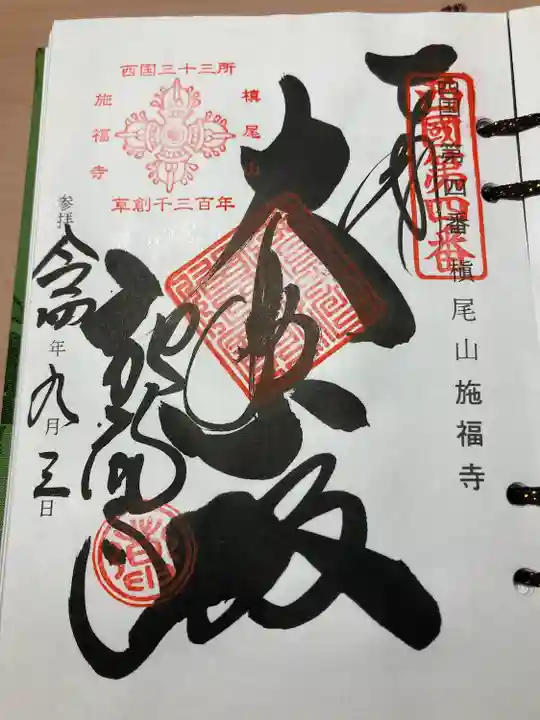 奉拝
西国第四番 槙尾山施福寺
西國第四番
大悲殿
施福寺
西国三十三所
槙尾山
施福寺
草創千三百年
参拝
令四年九月三日